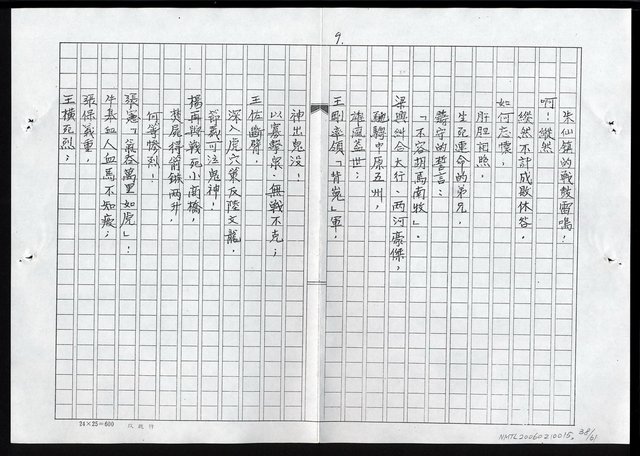 9.
朱仙鎮的戰鼓雷鳴，
啊！縱然
縱然不計成敗休咎，
如何忘懷，
肝胆相照，
生死連命的弟兄，
謹守的誓言：
「不容胡馬南牧」。
梁興糾合太行、兩河豪傑，
馳騁中原五州，
雄風蓋世；
王剛率領「背嵬」軍，
神出鬼沒！
以寡擊眾，無戰不克；
王佐斷臂，
深入虎穴策反陸文龍，
節義可泣鬼神！
楊再興戰死小商橋，
焚屍得箭鏃兩升，
何等慘烈！
張憲「氣吞萬里如虎」！
牛皋血人血馬不知疲；
張保義重，
王橫死烈；
24×25=600
NMTL20060210015
38/61